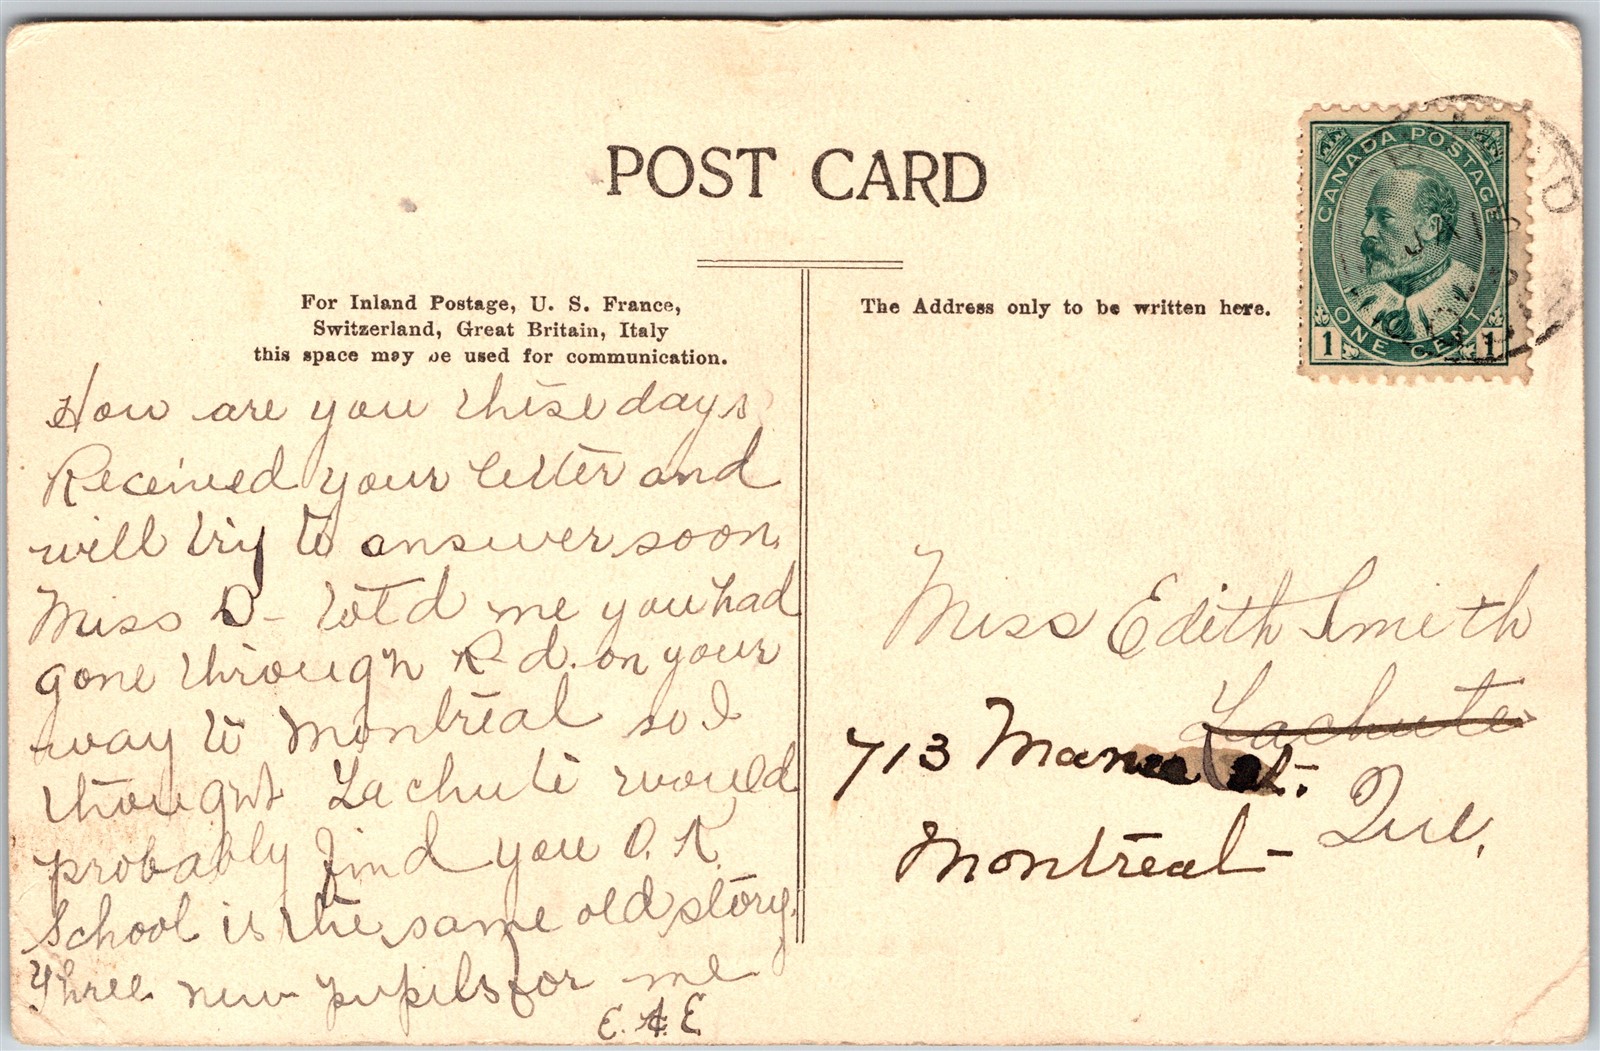 POST CARD
For Inland Postage, U. S. France,
Switzerland, Great Britain, Italy
this space may be used for communication.
The Address only to be written here.
CANADA POSTAGE
ONE CENT
1 1
How are you these days
Received your letter and
will try to answer soon.
Miss D- told me you had
gone through Rd. on your
way to Montreal so I
thought Lachute would
probably find you O.K.
School is the same old story.
Three new pupils for me
E. A. E.
Miss Edith Smith
Lachute
713 St.
Que.
Montreal-